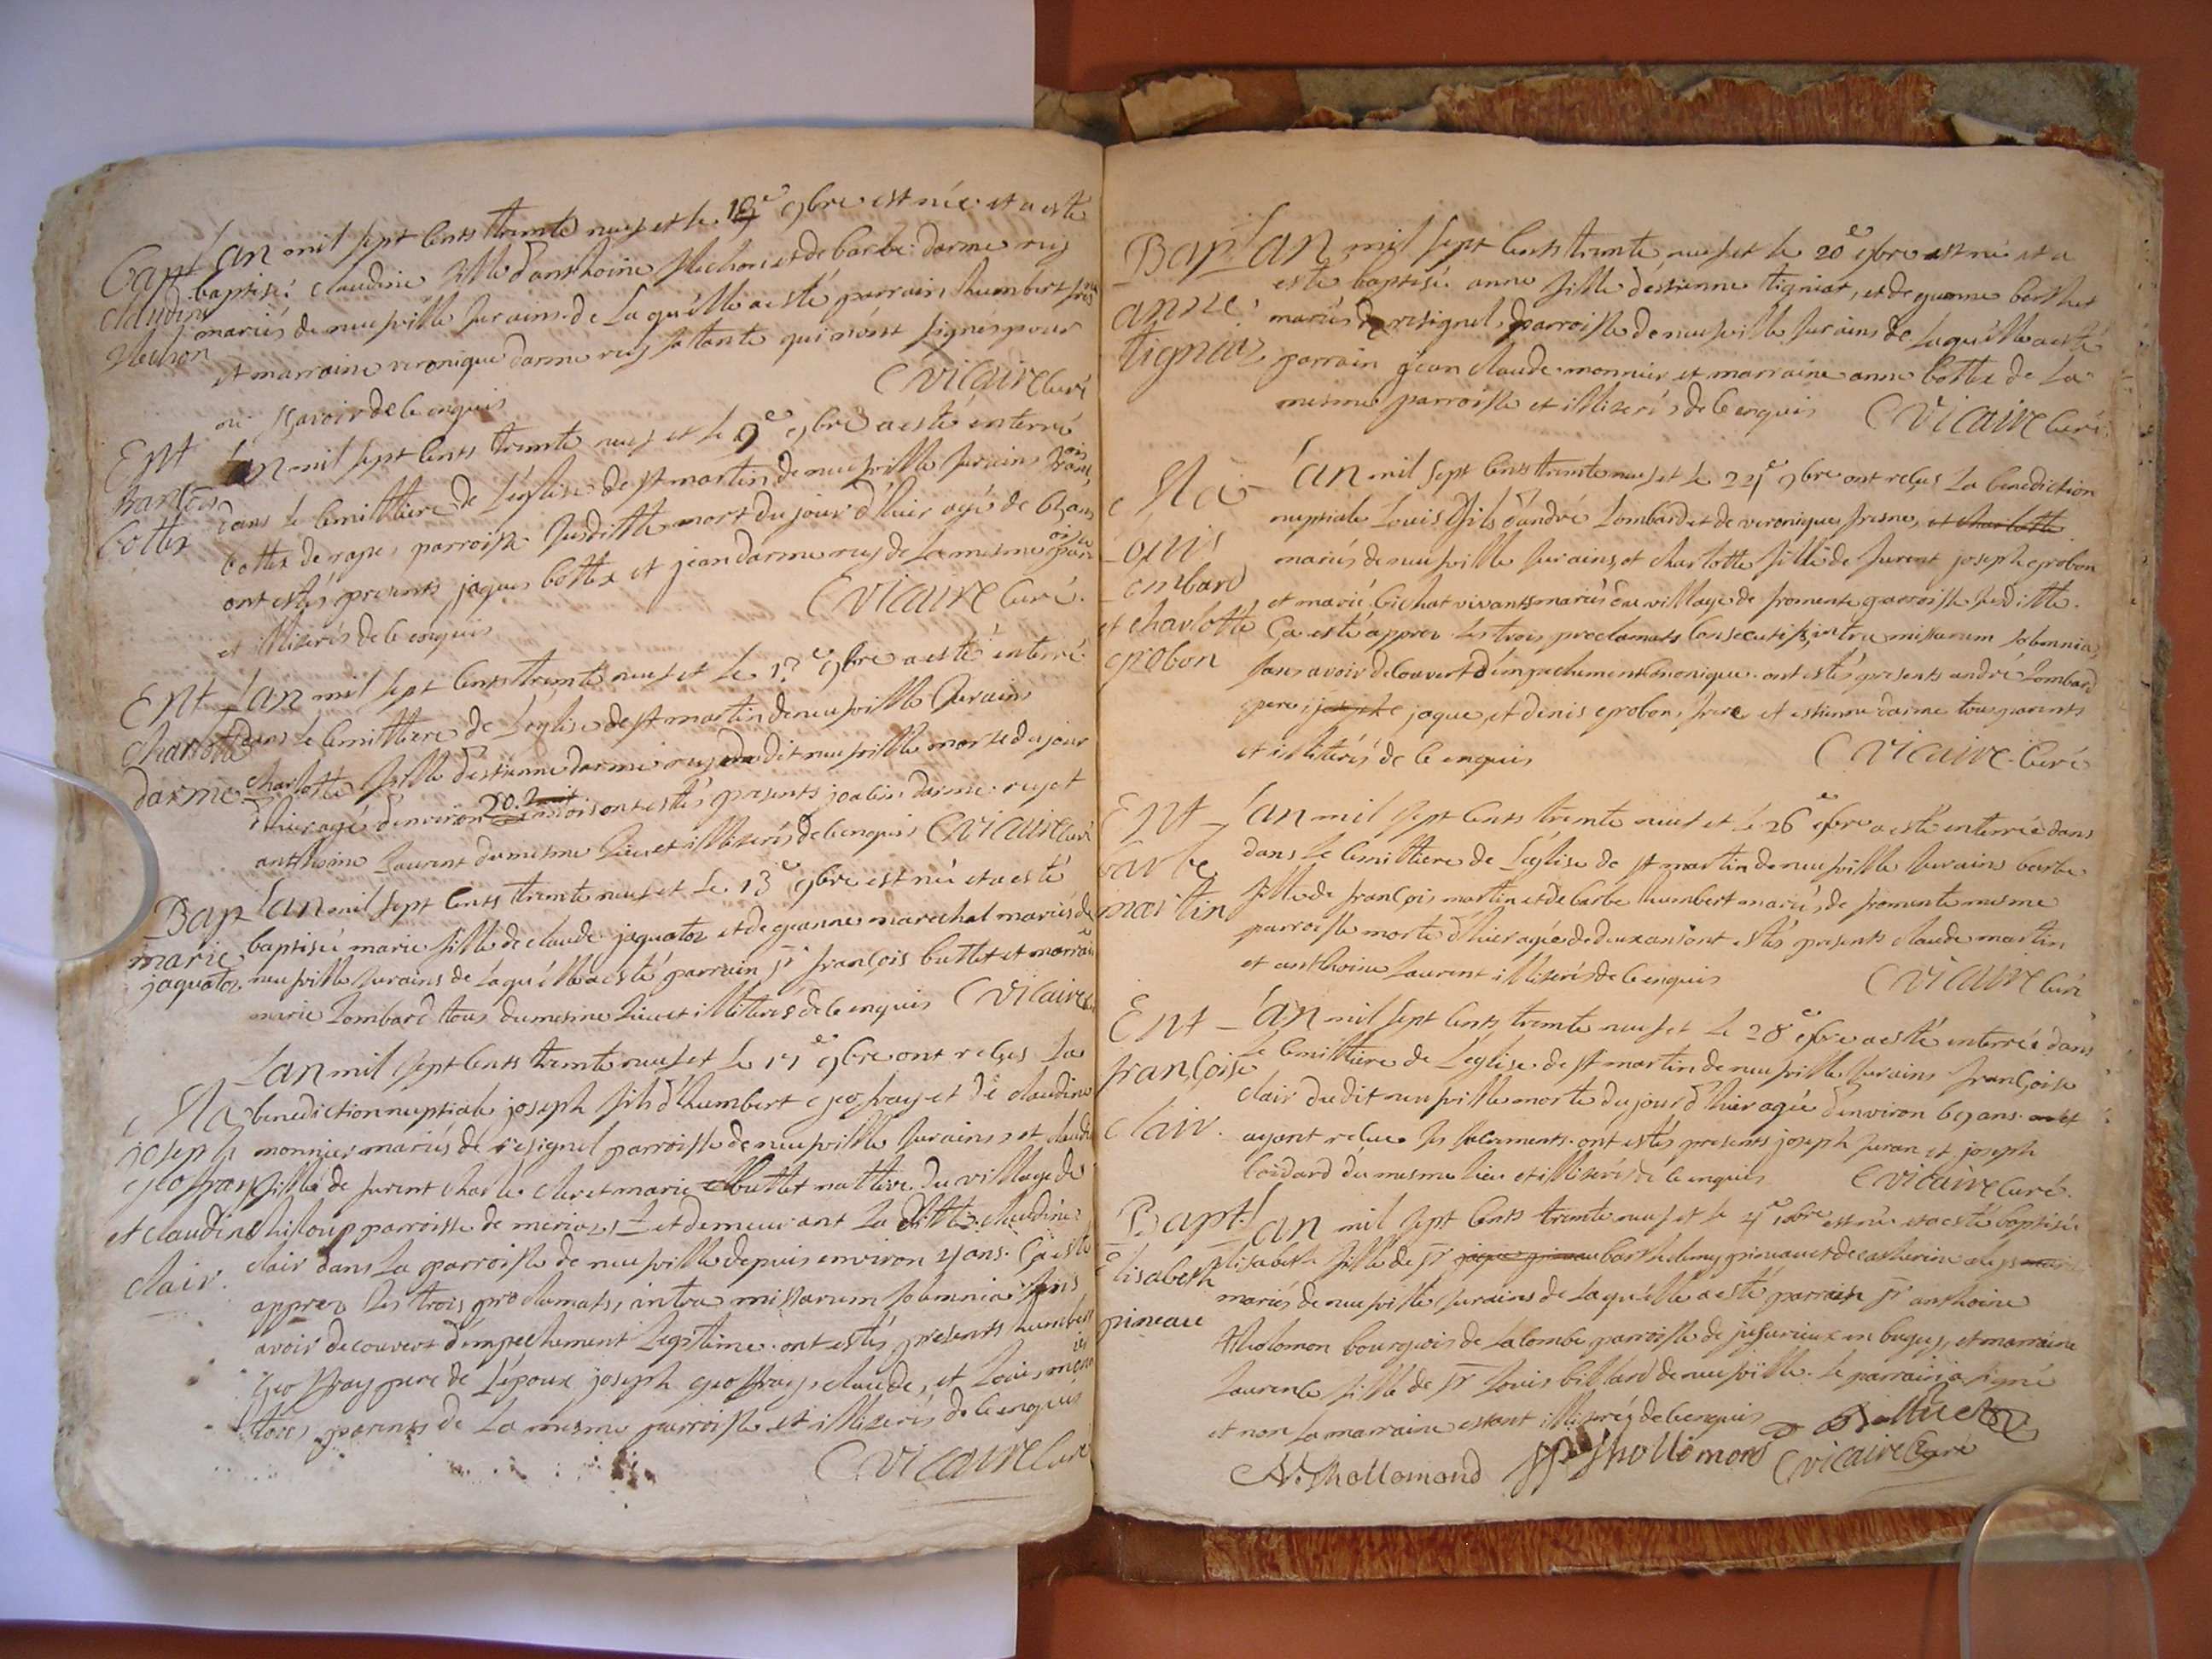 Bapt L'an mil sept cents trente neuf et le 9bre est née et a esté
claudine baptisée claudine fille d'anthoine et de barbe darme ruy
mariés de neufville sur ains de laquelle a esté parrain humbert
et marraine veronique darme ruy sa tante qui n'ont signés pour
ne sçavoir de ce enquis C Vicaire Curé
Ent L'an mil sept cents trente neuf et le 9e 9bre a esté enterré
dans le cemittiere de l'église de st martin de neufville sur ains françois
cottex parroisse susditte mort du jour d'hier agé de ans
ont estés presents jaques cottex et jean darme ruy de la mesme
et illiterés de ce enquis C Vicaire Curé
Ent L'an mil sept cents trente neuf et le 9bre a esté enterré
charlotte dans le cemittiere de l'église de st martin de neufville sur ains
darme charlotte fille d'estienne darme ruy dudit neufville morte du jour
d'hier agée d'environ ont estés presents darme ruy et
anthoine laurent du mesme lieu et illiterés de ce enquis C Vicaire Curé
Bap L'an mil sept cents trente neuf et le 13e 9bre est née et a esté
marie baptisée marie fille de claude jaquatoz et de jeanne marechal mariés de
jaquatoz neufville sur ains de laquelle a esté parrain sr françois buttet et marraine
marie Lombard tous du mesme lieu et illiterés de ce enquis C Vicaire
L'an mil sept cents trente neuf et le 9bre ont reçus la
Ma benediction nuptiale joseph fils d'humbert geoffray et de claudine
joseph monnier mariés de resignel parroisse de neufville sur ains et claudine
geoffray fille de furent charle clair et marie buttet nattive du village de
et claudine parroisse de et demeurant la ditte claudine
clair. clair dans la parroisse de neufville depuis environ ans. Ça esté
apprez les trois proclamats, intra missarum solemnia sans
avoir decouvert d'empechement legitime. ont estés presents humbert
geoffray pere de l'epoux joseph geoffray, claude, et Louis
tous parents de la mesme parroisse et illiterés de ce enquis
C Vicaire Curé
Bap L'an mil sept cents trente neuf et le 20e 9bre est née et a
anne esté baptisée anne fille d'estienne tigniat, et de jeanne
mariés de resignel, parroisse de neufville sur ains de laquelle a esté
parrain jean claude monnier et marraine anne cottex de la
mesme parroisse et illiterés de ce enquis C Vicaire Curé
Ma L'an mil sept cents trente neuf et le 9bre ont reçus la benediction
nuptiale Louis fils d'andré Lombard et de veronique fresne, et charlotte
ouis mariés de neufville sur ains, et charlotte fille de furent joseph probon
ombard et marie bichat vivants mariés du village de fromente parroisse susditte.
et charlotte Ça esté apprez les trois proclamats consecutifs, intra missarum solemnia,
probon sans avoir decouvert d'empechement canonique. ont estés presents andré Lombard
pere, joseph jaque, et denis probon, frere et estienne darme tous parents
et illiterés de ce enquis C Vicaire Curé
Ent L'an mil sept cents trente neuf et le 26e 9bre a esté enterrée dans
arbe dans le cemittiere de l'église de st martin de neufville sur ains barbe
martin fille de françois martin et de barbe humbert mariés de fromente mesme
parroisse morte d'hier agée de deux ans ont estés presents claude martin
et anthoine Laurent illiterés de ce enquis C Vicaire Curé
Ent L'an mil sept cents trente neuf et le 28e 9bre a esté enterrée dans
françoise le cemittiere de l'église de st martin de neufville sur ains françoise
clair. clair dudit neufville morte du jour d'hier agée d'environ ans
ayant reçue ses sacrements. ont estés presents joseph et joseph
du mesme lieu et illiterés de ce enquis C Vicaire Curé
Bapt. L'an mil sept cents trente neuf et le 4e 10bre est née et a esté baptisée
Elisabeth Elisabeth fille de sr barthelemy pineau et de catherine
pineau mariés de neufville sur ains de laquelle a esté parrain sr anthoine
tholomon bourgeois de la combe parroisse de jusurieux en bugey, et marraine
Laurence fille de sr Louis billard de neufville. Le parrain a signé
et non la marraine estant illiterée de ce enquis
A. Thollomond Thollomond C Vicaire Curé